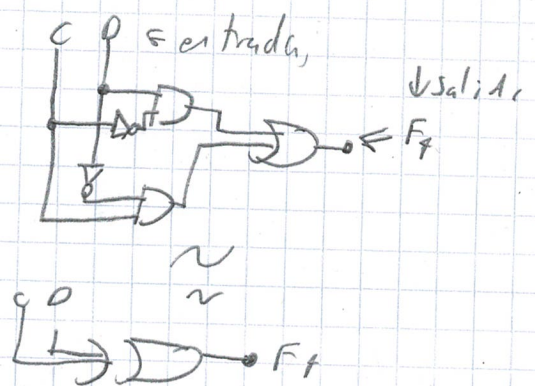 C D ← entrada,
↓ salida
← F₄
C D
F₄